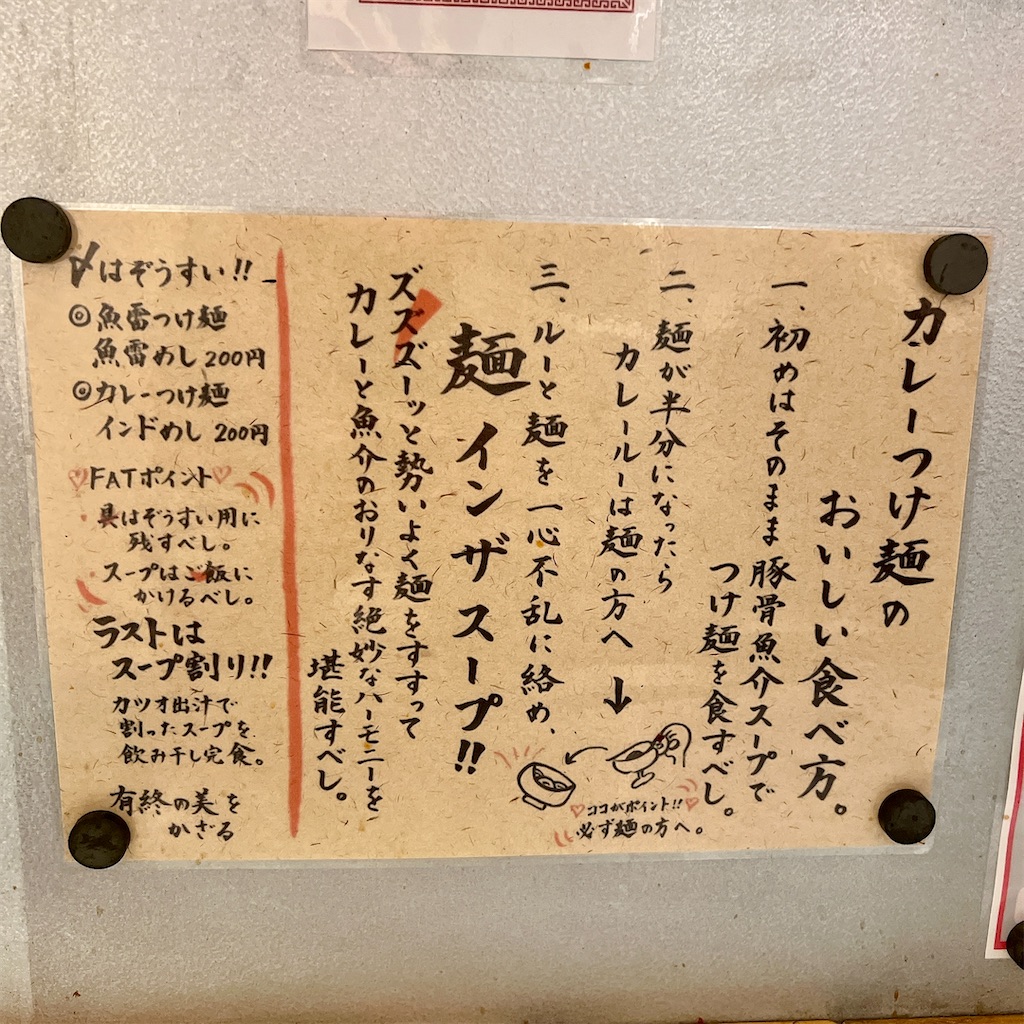 カレーつけ麺の
おいしい食べ方。
一、初めはそのまま豚骨魚介スープで
つけ麺を食すべし。
二、麺が半分になったら
カレールーは麺の方へ↓
ココがポイント!!
必ず麺の方へ。
三、ルーと麺を一心不乱に絡め、
麺インザスープ!!
ズズズーッと勢いよく麺をすすって
カレーと魚介のおりなす絶妙なハーモニーを
堪能すべし。
〆はぞうすい!!
◎魚雷つけ麺
魚雷めし200円
◎カレーつけ麺
インドめし200円
♡FATポイント♡
具はぞうすい用に
残すべし。
スープはご飯に
かけるべし。
ラストは
スープ割り!!
カツオ出汁で
割ったスープを
飲み干し完食。
有終の美を
かざる